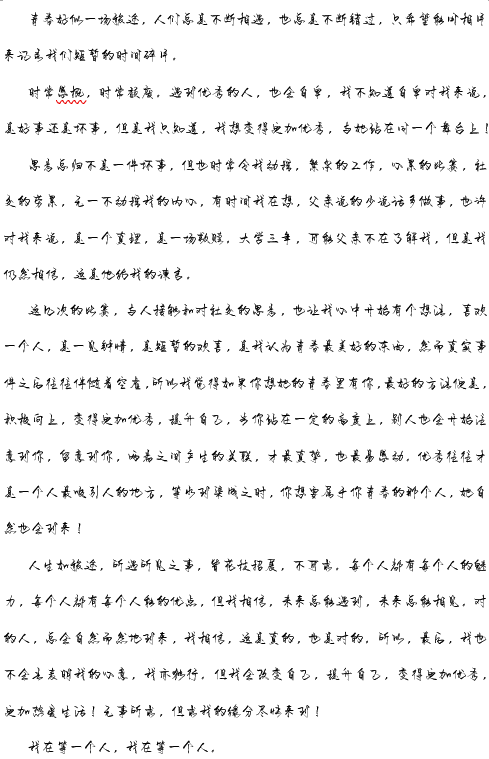 青春好似一场旅途，人们总是不断相遇，也总是不断错过，只希望能用相片
来记录我们短暂的时间碎片。
时常感概，时常颓废，遇到优秀的人，也会自卑，我不知道自卑对我来说，
是好事还是坏事，但是我只知道，我想变得更加优秀，与她站在同一个舞台上！
思考总归不是一件坏事，但也时常令我动摇，繁杂的工作，心累的比赛，社
交的劳累，无一不动摇我的内心，有时间我在想，父亲说的少说话多做事，也许
对我来说，是一个真理，是一场救赎，大学三年，可能父亲不在了解我，但是我
仍然相信，这是他给我的谏言。
这几次的比赛，与人接触和对社交的思考，也让我心中开始有个想法，喜欢
一个人，是一见钟情，是短暂的欢喜，是我认为青春最美好的东西，然而真实事
件之后往往伴随着空虚，所以我觉得如果你想她的青春里有你，最好的方法便是，
积极向上，变得更加优秀，提升自己，当你站在一定的高度上，别人也会开始注
意到你，留意到你，两者之间产生的关联，才最真挚，也最易感动，优秀往往才
是一个人最吸引人的地方，等水到渠成之时，你想要属于你青春的那个人，她自
然也会到来！
人生如旅途，所遇所见之事，皆花枝招展，不可求，每个人都有每个人的魅
力，每个人都有每个人的优点，但我相信，未来总能遇到，未来总能相见，对
的人，总会自然而然地到来，我相信，这是真的，也是对的，所以，最后，我也
不会去表明我的心意，我亦独行，但我会改变自己，提升自己，变得更加优秀，
更加热爱生活！无事所求，但求我的缘分尽快来到！
我在等一个人，我在等一个人。